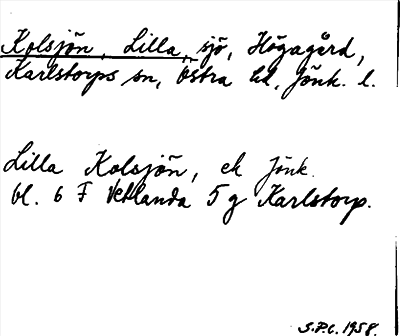 Kolsjön, Lilla, sjö, Högagärd,
Karlstorps sn, Östra hd, Jönk. l.
Lilla Kolsjön, ek Jönk.
bl. 6 F Vetlanda 5 g Karlstorp.
S.P.C. 1958.